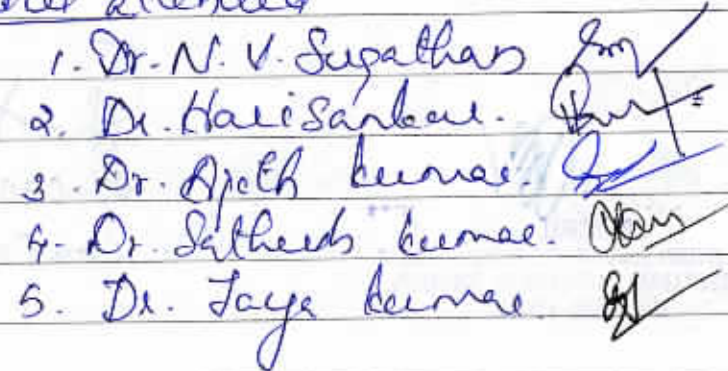 attended
1. Dr. N. V. Sugathan
2. Dr. Harisankar.
3. Dr. Ajith kumar.
4. Dr. Satheesh kumar.
5. Dr. Jaya kumar